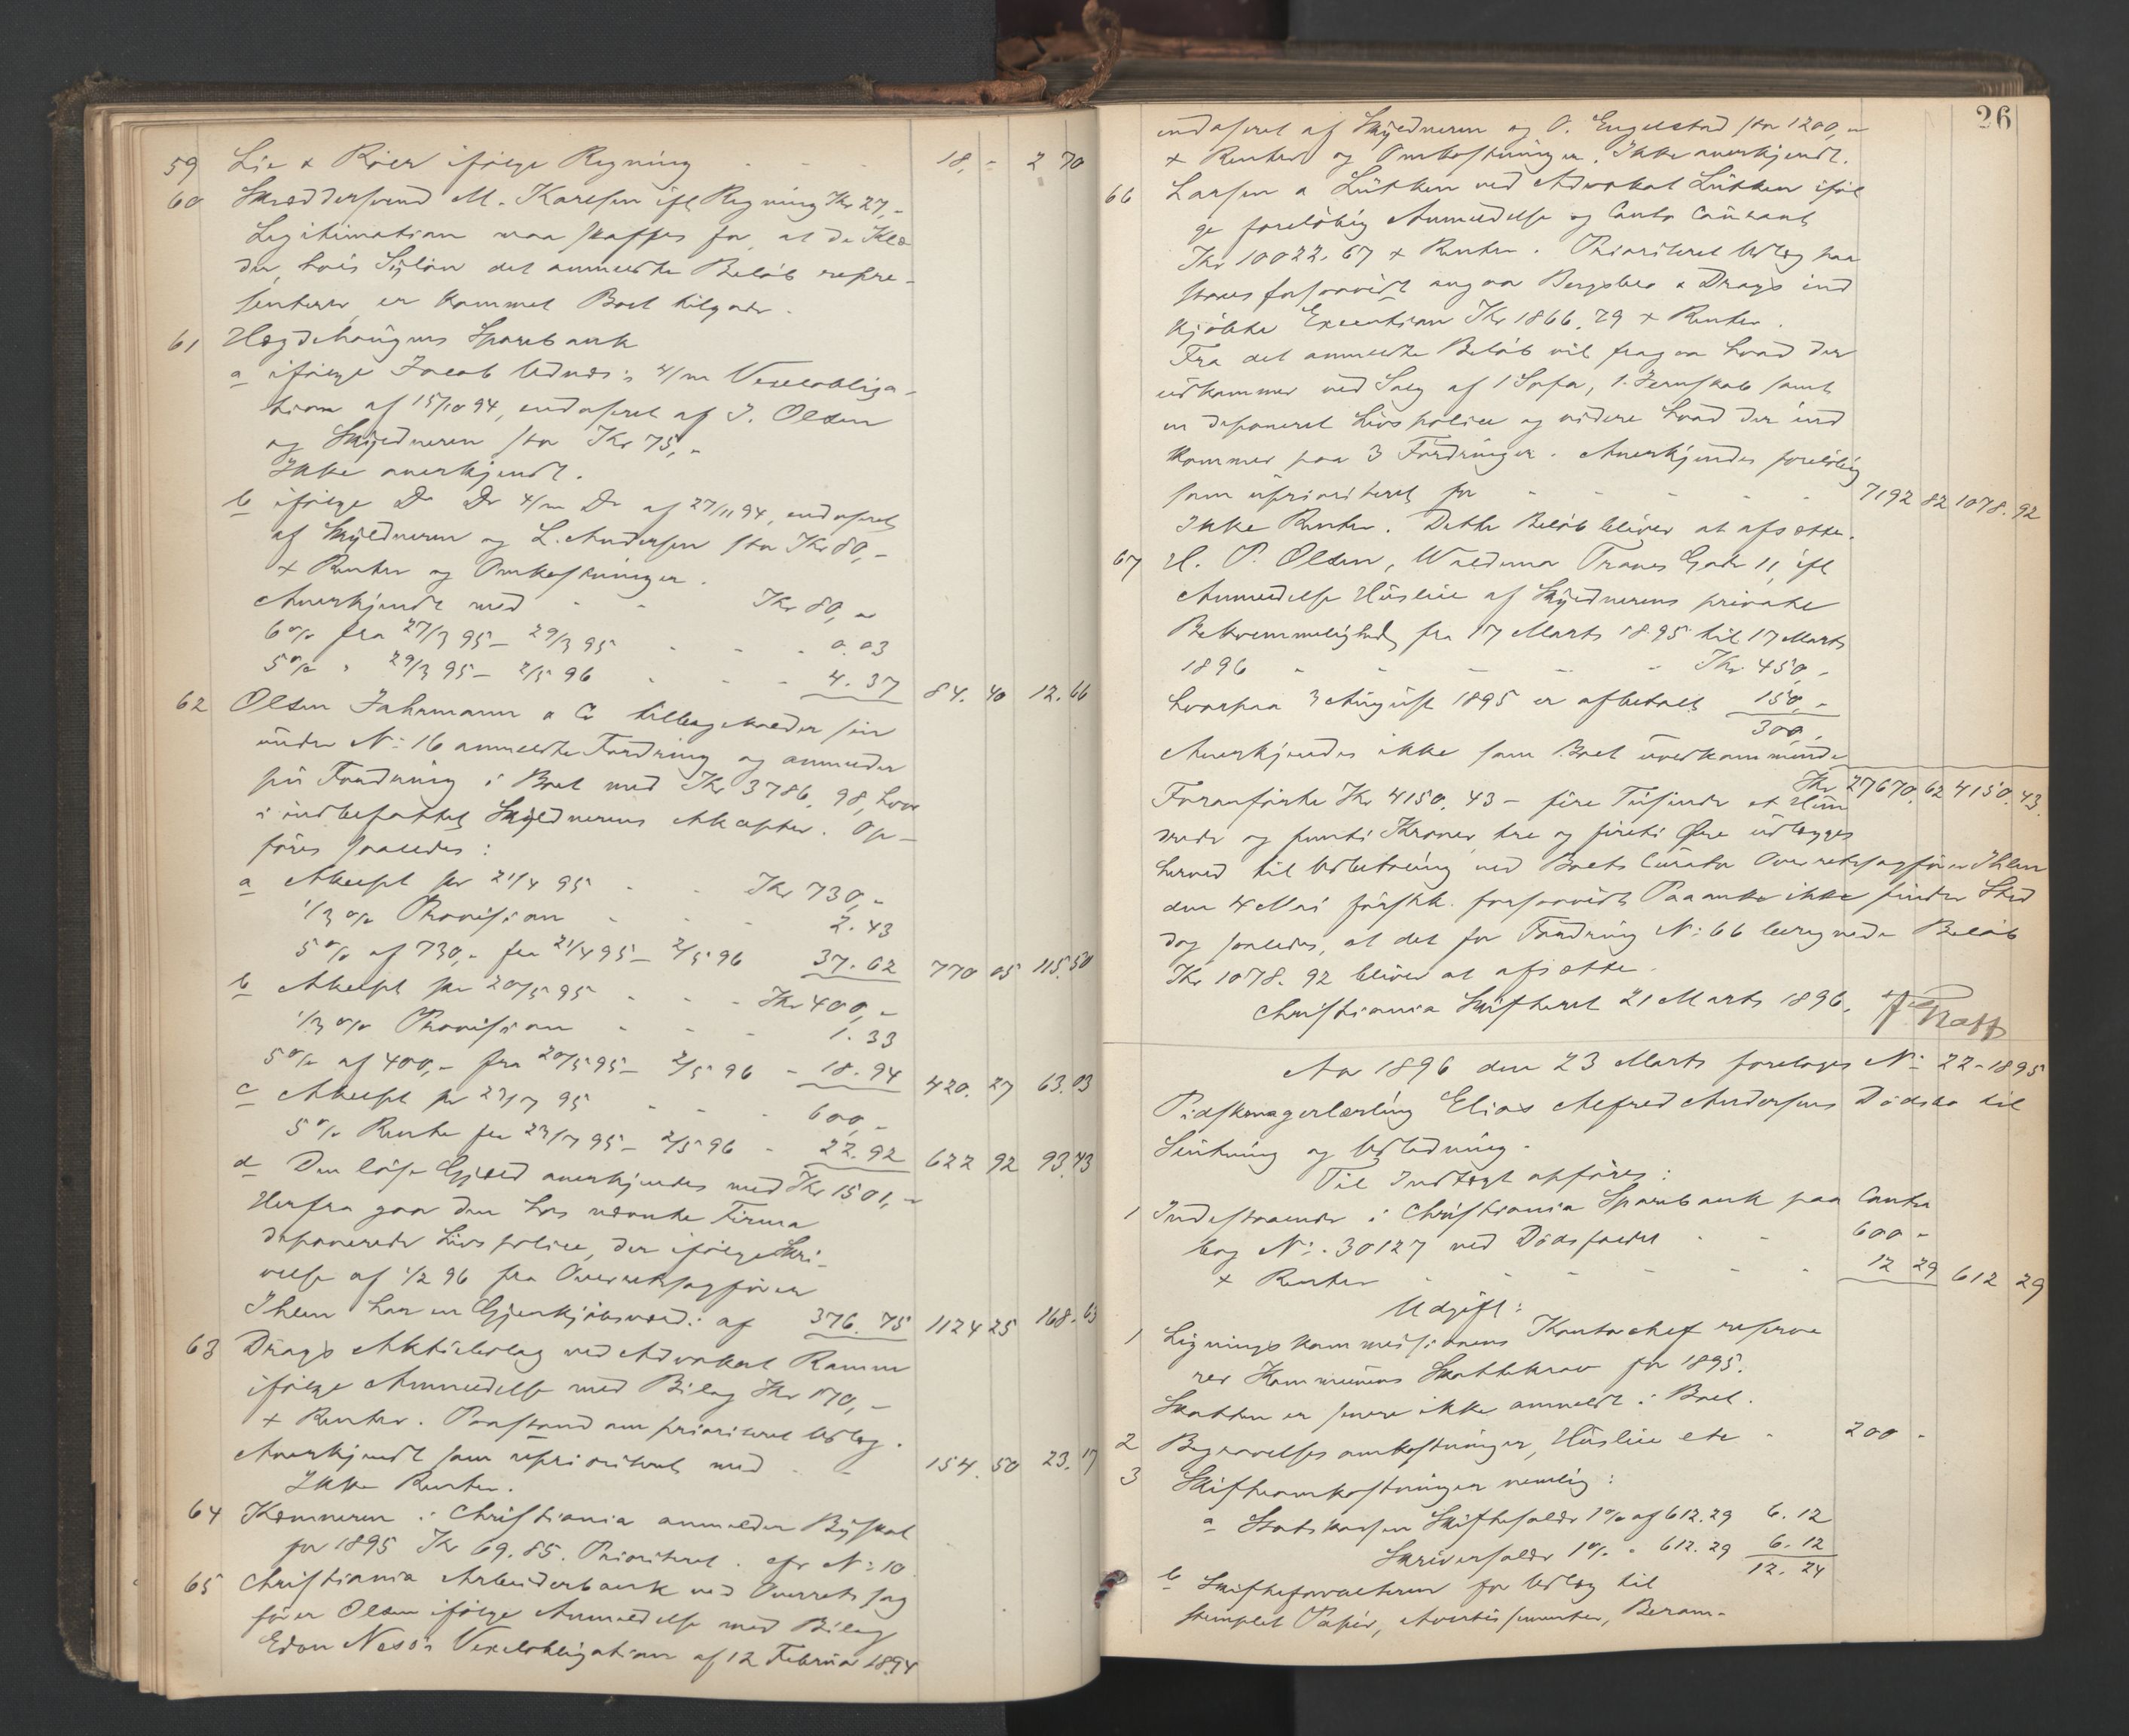 59 Lie & Röer ifølge Regning - - - 18,- 2 70
60 Skræddersvend M. Karlsen ifl Regning Kr 27,-
Legitimation maa skaffes for, at de Klæ-
der, hvis Sylön det anmeldte Belöb repre-
senterer, er kommet Boet tilgode.
61 Hegdehaugens Sparebank
a ifølge Jacob Udnæs's 4/m Vexelobliga-
tion af 15/10 94, endosseret af J. Olsen
og Skyldneren stor Kr 75,-
Ikke anerkjendt.
b ifølge Do Do 4/m Do af 27/11 94, endosseret
af Skyldneren og L. Andersen stor Kr 80,-
+ Renter og Omkostninger.
Anerkjendt med - - Kr 80,-
6% fra 27/3 95 - 29/3 95 - - - 0.03
5% " 29/3 95 - 2/5 96 - - - 4.37 84. 40 12.66
62 Olsen Jahrmann & Co tilbagekalder sin
under No 16 anmeldte Fordring og anmelder
sin Fordring i Boet med Kr 3786, 98, hvor
i indbefattet Skyldnerens Akcepter. Op-
føres saaledes:
a Akcept pr 21/4 95 - - Kr 730,-
1/3 % Provision - - - 2.43
5% af 730,- fra 21/4 95 - 2/5 96 37.62 770 05 115.50
b Akcept pr 20/5 95 - - - Kr 400,-
1/3 % Provision - - - 1.33
5% af 400,- fra 20/5 95 - 2/5 96 - 18.94 420. 27 63.03
c Akcept pr 27/7 95 - - - 600,-
5% Rente fra 27/7 95 - 2/5 96 - 22.92 622 92 93.43
d Den löse Gjæld anerkjendes med Kr 1501,-
Herfra gaar den hos nævnte Firma
deponerede Livspolice, der ifølge Skri-
velse af 1/2 96 fra Overretssagförer
Ihlen har en Gjenkjöbsværdi af 376. 75 1124 25 168.63
63 Drags Aktiebolag ved Advokat Ramm
ifølge Anmeldelse med Bilag Kr 170,-
+ Renter. Paastand om prioriteret Udlæg.
Anerkjendt som uprioriteret med - - 154. 50 23. 17
Ikke Renter.
64 Kæmneren i Christiania anmelder Byskat
for 1895 Kr 69.85. Prioriteret. cfr No 10
65 Christiania Arbeiderbank ved Overretssag
förer Olsen ifølge Anmeldelse med Bilag
Edon Næss's Vexelobligation af 12 Februar 1894
26
endosseret af Skyldneren og O. Engelstad stor 1200,-
+ Renter og Omkostninger. Ikke anerkjendt.
66 Larsen & Lütken ved Advokat Lütken iföl
ge foreløbig Anmeldelse og Conto Courant
Kr 10022. 67 + Renter. Prioriteret Udlæg paa
staaes forsaavidt angaar Bergsbro & Drags ind
kjöbte Execution Kr 1866. 29 + Renter.
Fra det anmeldte Belöb vil fragaa hvad der
udkommer ved Salg af 1 Sofa, 1 Jernskab samt
en deponeret Livspolice og videre hvad der ind
kommer paa 3 Fordringer. Anerkjendes foreløbig
som uprioriteret for - - - - - - 7192 82 1078. 92
Ikke Renter. Dette Belöb bliver at afsætte.
67 H. P. Olsen, Waldemar Thranes Gade 11, ifl
Anmeldelse Husleie af Skyldnerens private
Bekvemmelighed fra 17 Marts 1895 til 17 Marts
1896 - - - - - Kr 450,-
hvorpaa 3 August 1895 er afbetalt 150,-
300,-
Anerkjendes ikke som Boet uvedkommende
Kr 27670. 62 4150. 43.
Foranførte Kr 4150. 43 - fire Tusinde et Hun
drede og femti Kroner, tre og firti Øre udlægges
herved til Udbetaling ved Boets Curator Overretssagfører Ihlen
den 4 Mai förstk. forsaavidt Paaanke ikke finder Sted
dog saaledes, at det for Fordring No 66 beregnede Belöb
Kr 1078. 92 bliver at afsætte.
Christiania Skifteret 21 Marts 1896.
Aar 1896 den 23 Marts foretoges No 22-1895
Pidskmagerlærling Elias Alfred Andersens Dödsbo til
Slutning og Udlodning.
Til Indtægt opføres:
1 Indestaaende i Christiania Sparebank paa Contra
bog No. 30127 ved Dödsfaldet - - 600 -
+ Renter - - - - - - 12 29 612 29
Udgift:
1 Ligningskommissionens Kontorchef reserve
rer Kommunens Skattekrav for 1895.
Skatten er senere ikke anmeldt i Boet.
2 Begravelsesomkostninger, Husleie etc - 200 -
3 Skifteomkostninger nemlig:
a Statskassen Skiftesalær 1% af 612.29 6. 12
Skriversalær 1% " 612. 29 6. 12
12. 24
b Skifteforvalteren for Udlæg til
stemplet Papir, Avertissementer, Beram-